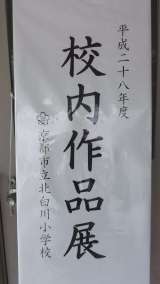 平成二十八年度
校内作品展
京都市立北白川小学校